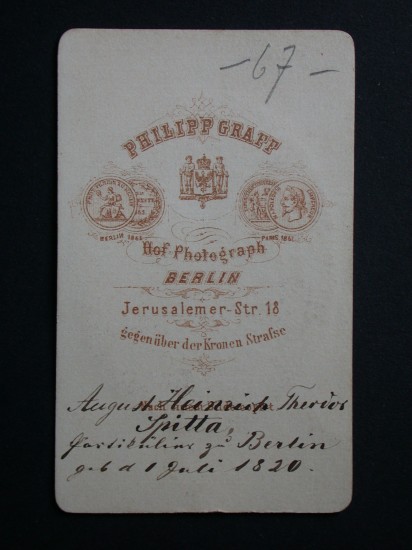 – 67 –
PHILIPP GRAFF
BERLIN 1865
PARIS 1867.
Hof-Photograph
BERLIN
Jerusalemer-Str. 18
gegenüber der Kronen Strafse
August Heinrich Theodor
Spitta,
Partikulier zu Berlin
geb d 1 Juli 1820.